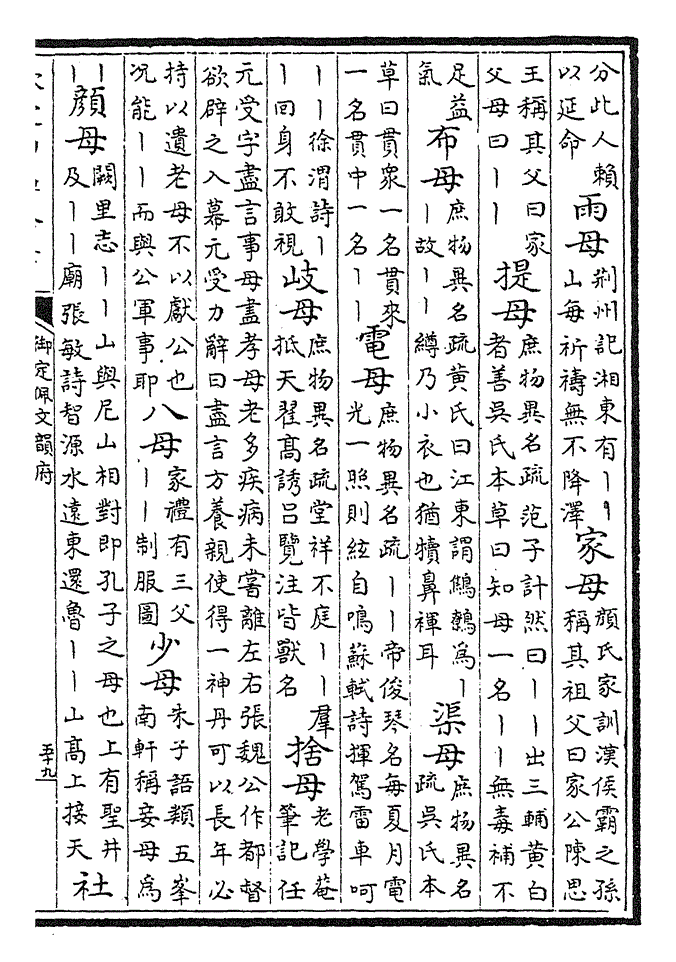 分此人賴
以延命
雨母
荆州記湘東有丨丨
山每祈禱無不降澤
家母
顔氏家訓漢侯霸之孫
稱其祖父曰家公陳思
王稱其父曰家
父母曰丨丨
提母
庶物異名疏范子計然曰丨丨出三輔黄白
者善吳氏本草曰知母一名丨丨無毒補不
足益
氣
布母
庶物異名疏黄氏曰江東謂鷦鷯爲丨
丨故丨丨縛乃小衣也猶犢鼻褌耳
渠母
庶物異名
疏吳氏本
草曰貫衆一名貫來
一名貫中一名丨丨
電母
庶物異名疏丨丨帝俊琴名每夏月電
光一照則絃自鳴蘇軾詩揮駕雷車呵
丨丨徐渭詩丨
丨回身不敢視
岐母
庶物異名疏堂祥不庭丨丨羣
抵天翟高誘吕覽注皆獸名
捨母
老學菴
筆記任
元受字盡言事母盡孝母老多疾病未嘗離左右張魏公作都督
欲辟之入幕元受力辭曰盡言方養親使得一神丹可以長年必
持以遺老母不以獻公也
况能丨丨而與公軍事耶
八母
家禮有三父
丨丨制服圖
少母
朱子語類五峯
南軒稱妾母爲
丨
丨
顔母
闕里志丨丨山與尼山相對即孔子之母也上有聖井
及丨丨廟張敏詩智源水遠東還魯丨丨山高上接天
社
御定佩文韻府
五十九